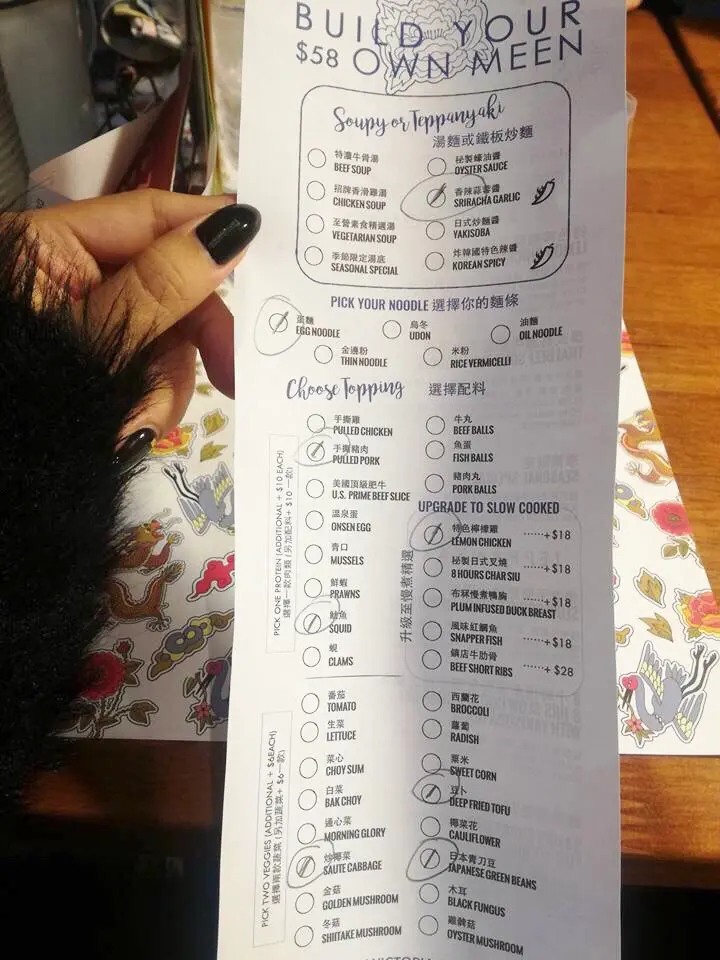 BUILD YOUR
$58 OWN MEEN
Soupy or Teppanyaki
湯麵或鐵板炒麵
特濃牛骨湯
BEEF SOUP
招牌香滑雞湯
CHICKEN SOUP
至營素食精選湯
VEGETARIAN SOUP
季節限定湯底
SEASONAL SPECIAL
秘製蠔油醬
OYSTER SAUCE
香辣蒜蓉醬
SRIRACHA GARLIC
日式炒麵醬
YAKISOBA
炸韓國特色辣醬
KOREAN SPICY
PICK YOUR NOODLE 選擇你的麵條
蛋麵
EGG NOODLE
烏冬
UDON
油麵
OIL NOODLE
金邊粉
THIN NOODLE
米粉
RICE VERMICELLI
Choose Topping 選擇配料
PICK ONE PROTEIN (ADDITIONAL + $10 EACH)
選擇一款肉類 (另加配料+ $10 一款)
手撕雞
PULLED CHICKEN
手撕豬肉
PULLED PORK
美國頂級肥牛
U.S. PRIME BEEF SLICE
溫泉蛋
ONSEN EGG
青口
MUSSELS
鮮蝦
PRAWNS
魷魚
SQUID
蜆
CLAMS
牛丸
BEEF BALLS
魚蛋
FISH BALLS
豬肉丸
PORK BALLS
UPGRADE TO SLOW COOKED
升級至慢煮精選
特色檸檬雞
LEMON CHICKEN ······+ $18
秘製日式叉燒
8 HOURS CHAR SIU ······+ $18
布林慢煮鴨胸
PLUM INFUSED DUCK BREAST ······+ $18
風味紅鯛魚
SNAPPER FISH ······+ $18
鎮店牛肋骨
BEEF SHORT RIBS ······+ $28
PICK TWO VEGGIES (ADDITIONAL + $6EACH)
選擇兩款蔬菜 (另加蔬菜+ $6一款)
番茄
TOMATO
生菜
LETTUCE
菜心
CHOY SUM
白菜
BAK CHOY
通心菜
MORNING GLORY
炒椰菜
SAUTE CABBAGE
金菇
GOLDEN MUSHROOM
冬菇
SHIITAKE MUSHROOM
西蘭花
BROCCOLI
蘿蔔
RADISH
粟米
SWEET CORN
豆卜
DEEP FRIED TOFU
椰菜花
CAULIFLOWER
日本青刀豆
JAPANESE GREEN BEANS
木耳
BLACK FUNGUS
雞髀菇
OYSTER MUSHROOM